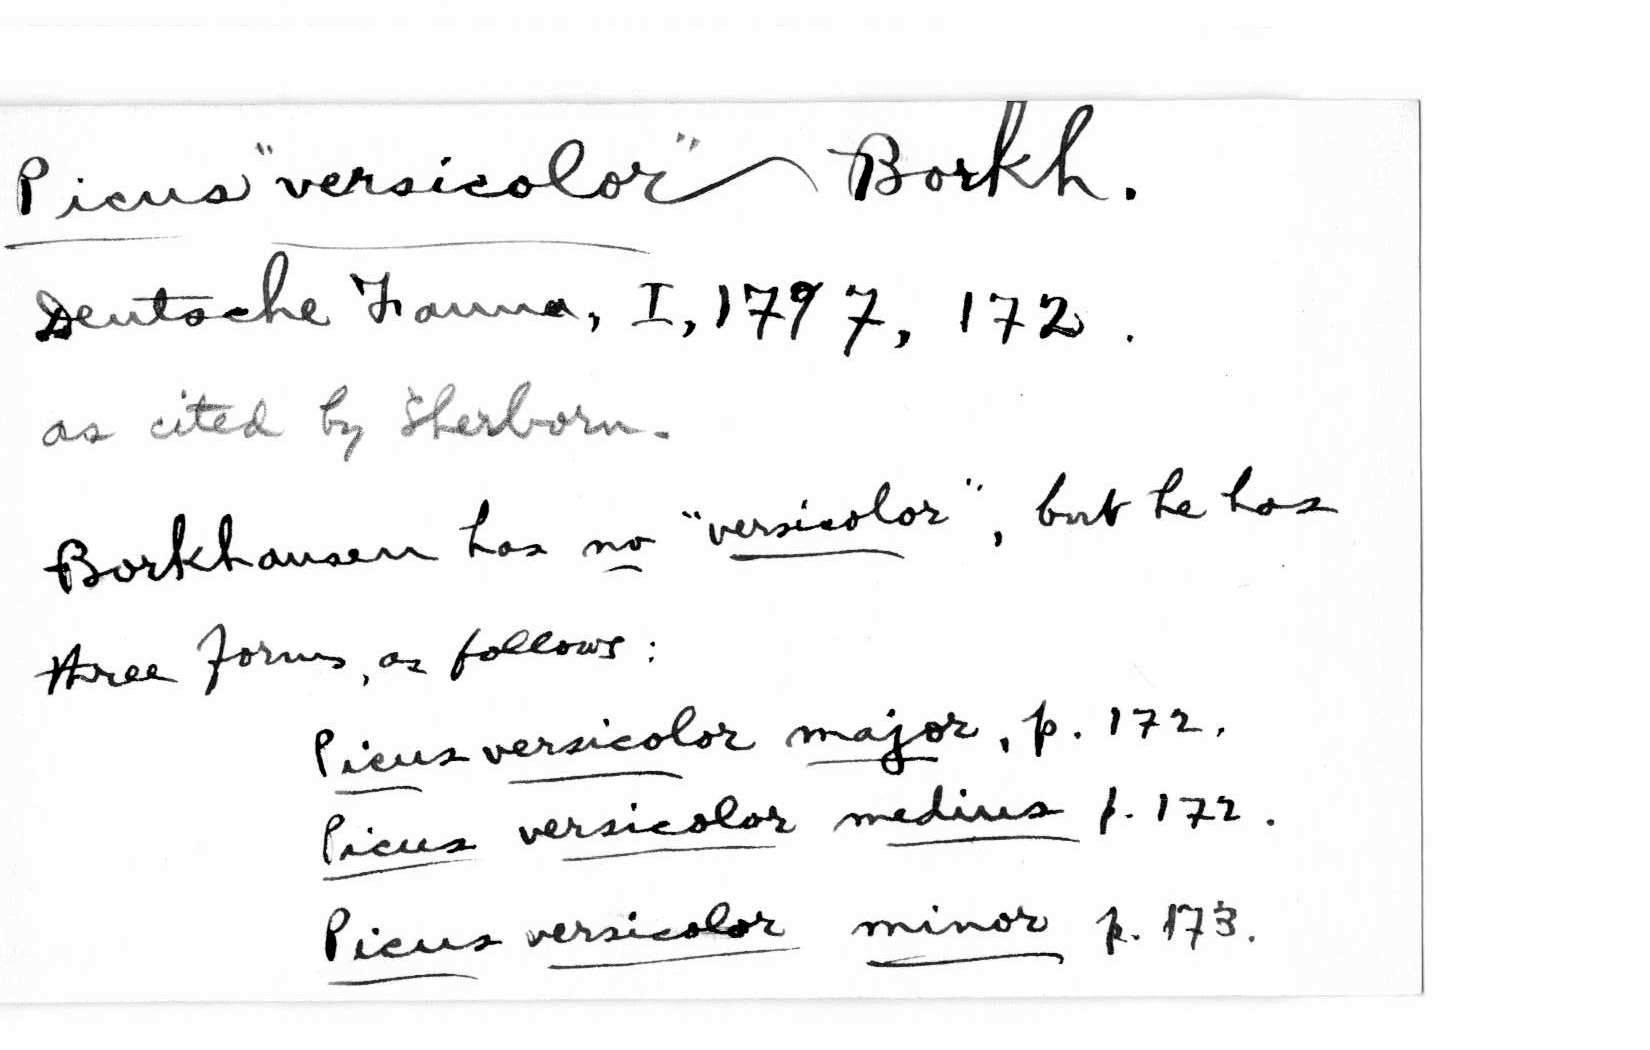 Picus "versicolor" Borkh.
Deutsche Fauna, I, 1797, 172.
as cited by Sherborn.
Borkhausen has no "versicolor", but he has
three forms, as follows:
Picus versicolor major, p. 172.
Picus versicolor medius p. 172.
Picus versicolor minor p. 173.